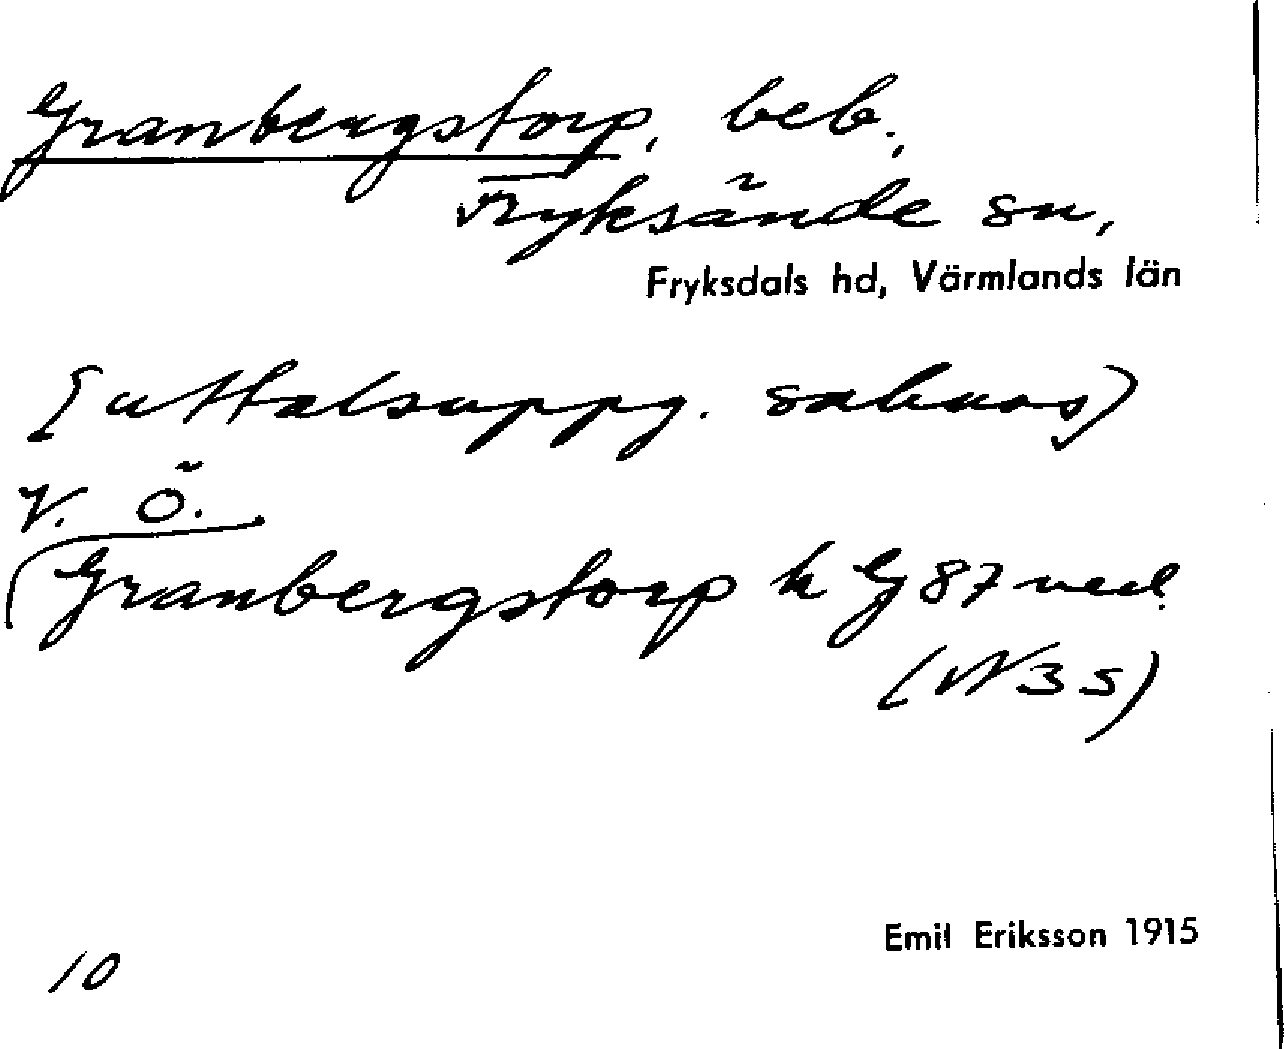 Granbergstorp, beb.,
Fryksände sn,
Fryksdals hd, Värmlands län
[uttalsuppg. saknas]
V. Ö.
Granbergstorp h G 87 ned.
(N 3 s)
Emil Eriksson 1915
10